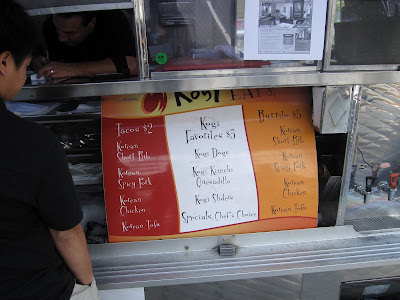 Kogi EATS
Tacos $2
Korean
Short Rib
Korean
Spicy Pork
Korean
Chicken
Korean Tofu
Kogi
Favorites $5
Kogi Dogs
Kogi Kimchi
Quesadilla
Kogi Sliders
Specials: Chef's Choice
Burrito $5
Korean
Short Rib
Korean
Spicy Pork
Korean
Chicken
Korean Tofu